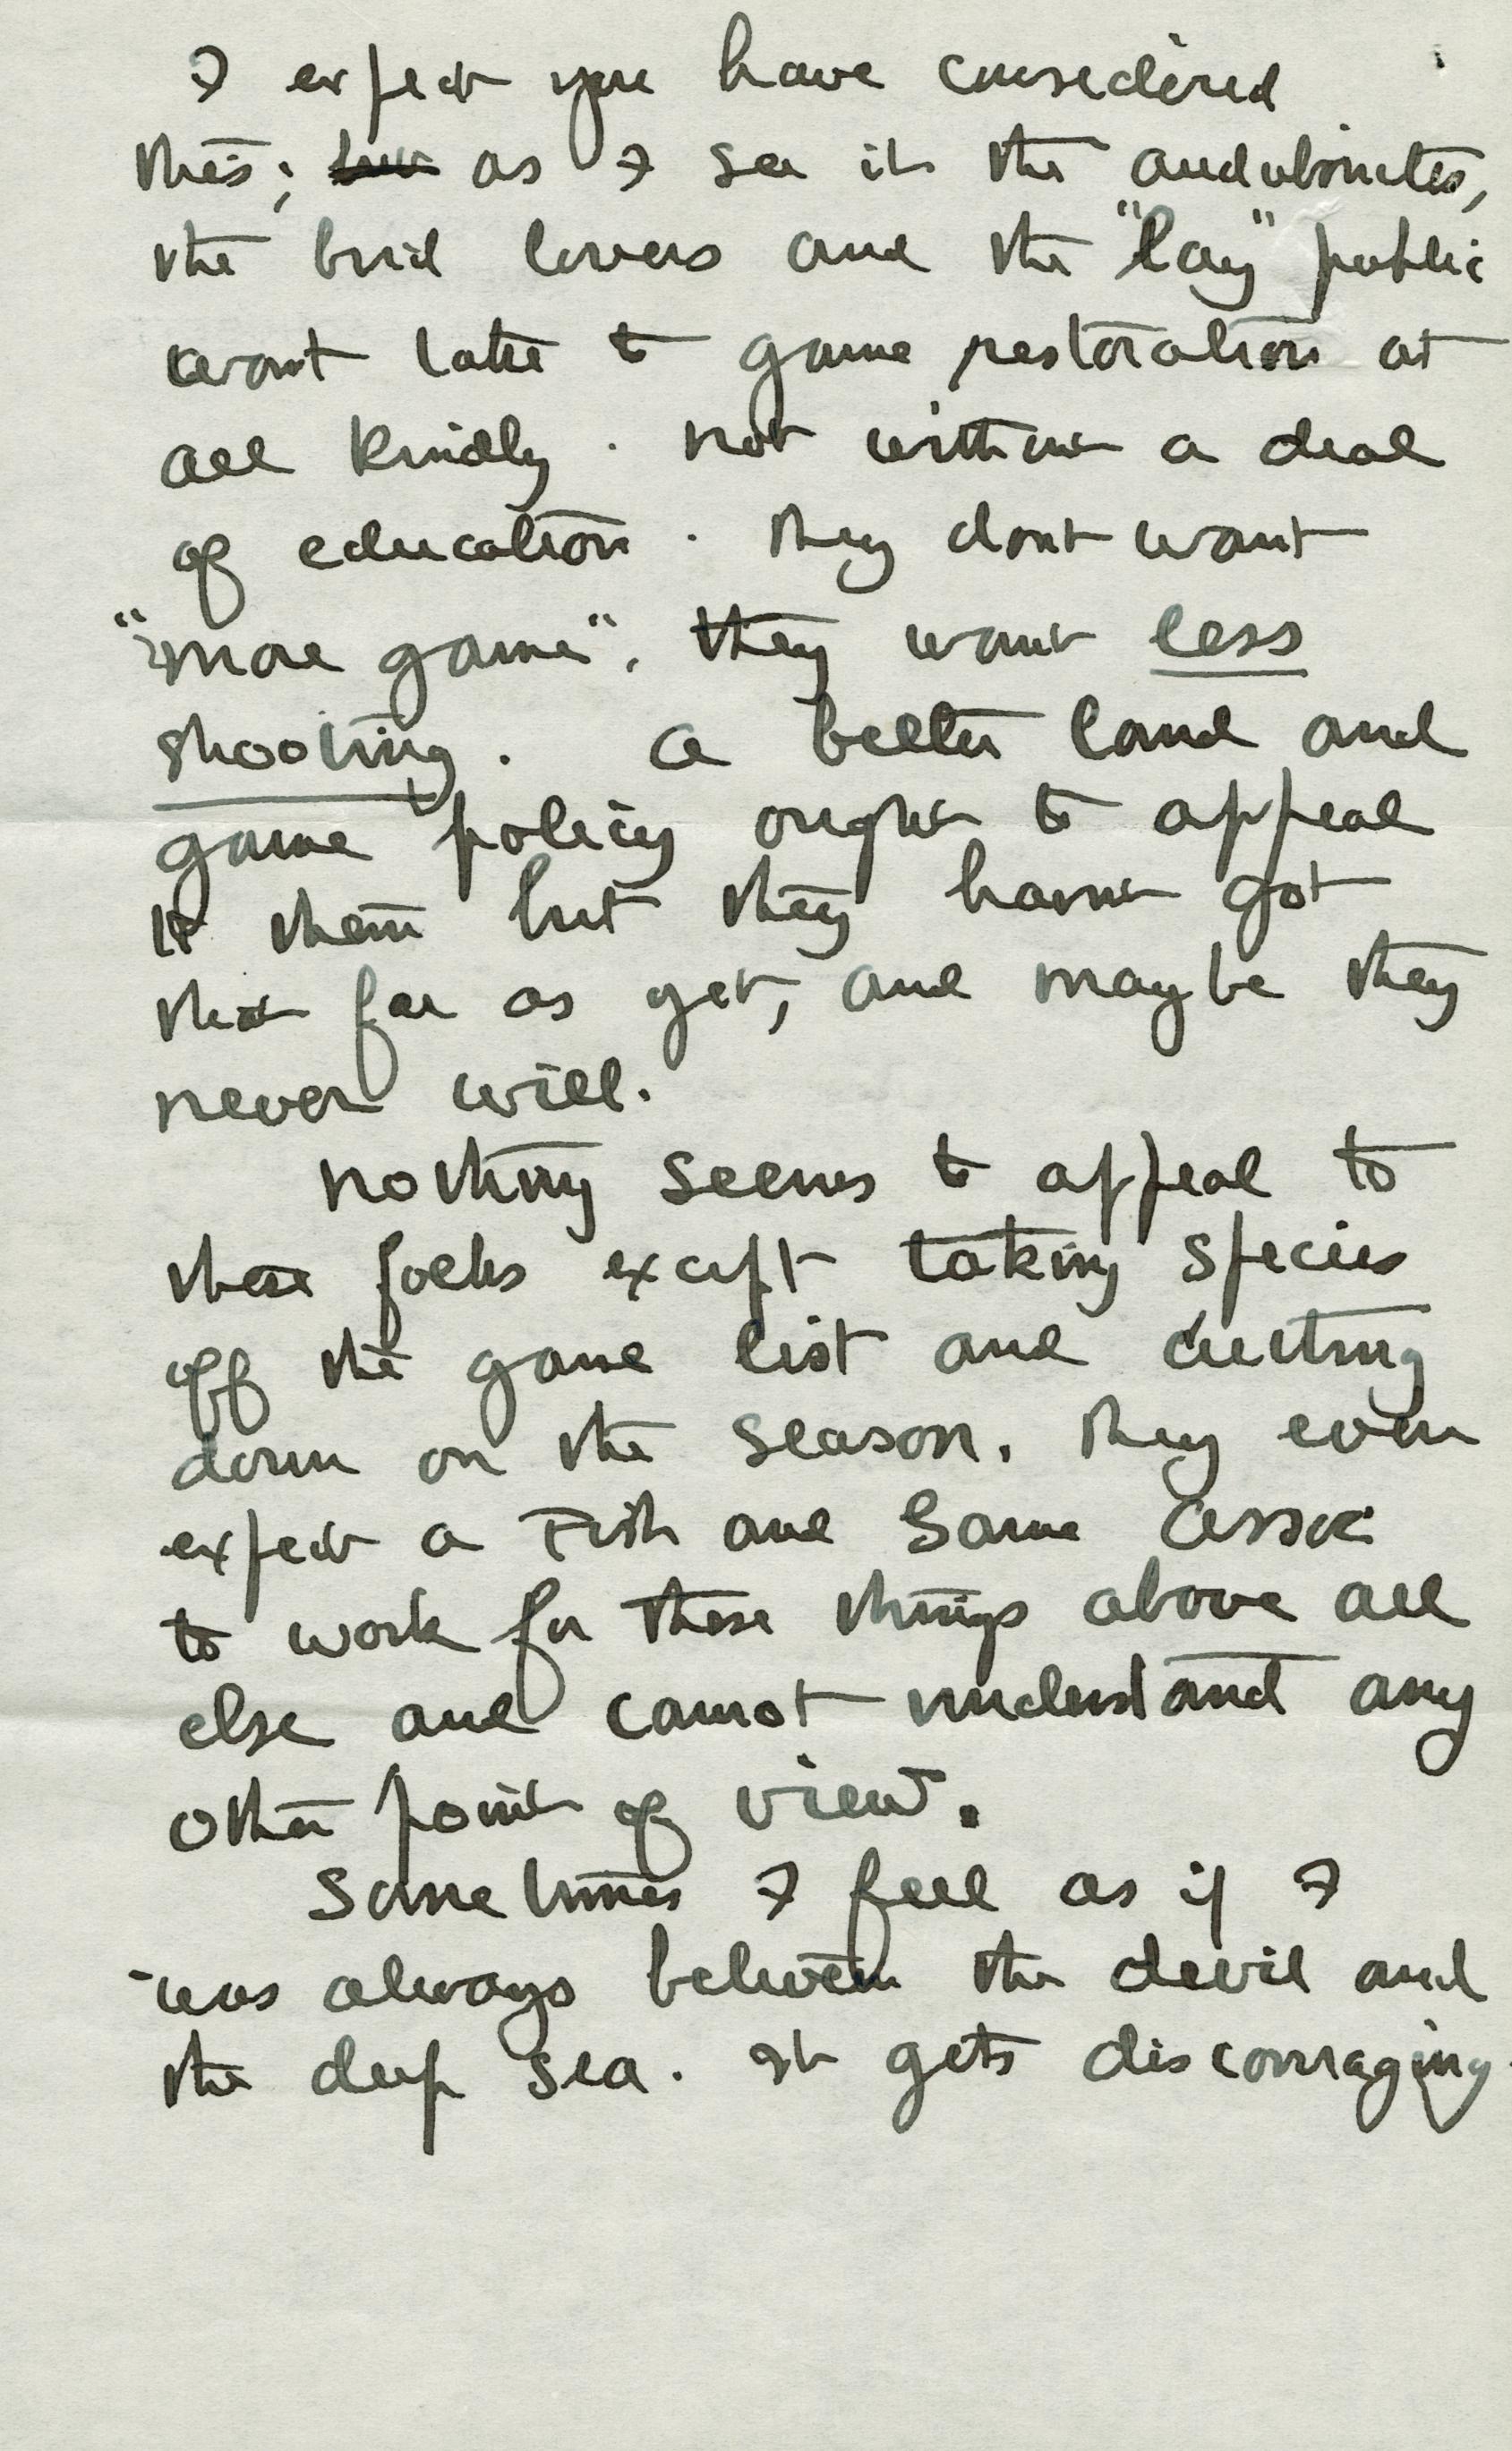 I expect you have considered
this; but as I see it the audubonites,
the bird lovers and the "lay" public
wont take to game restoration at
all kindly. Not without a deal
of education. They dont want
"more game", they want less
shooting. A better land and
game policy ought to appeal
to them but they havnt got
that far as yet, and maybe they
never will.
Nothing seems to appeal to
these folks except taking species
off the game list and cutting
down on the season. They even
expect a Fish and Game Assoc.
to work for these things above all
else and cannot understand any
other point of view.
Sometimes I feel as if I
was always between the devil and
the deep sea. It gets discouraging.